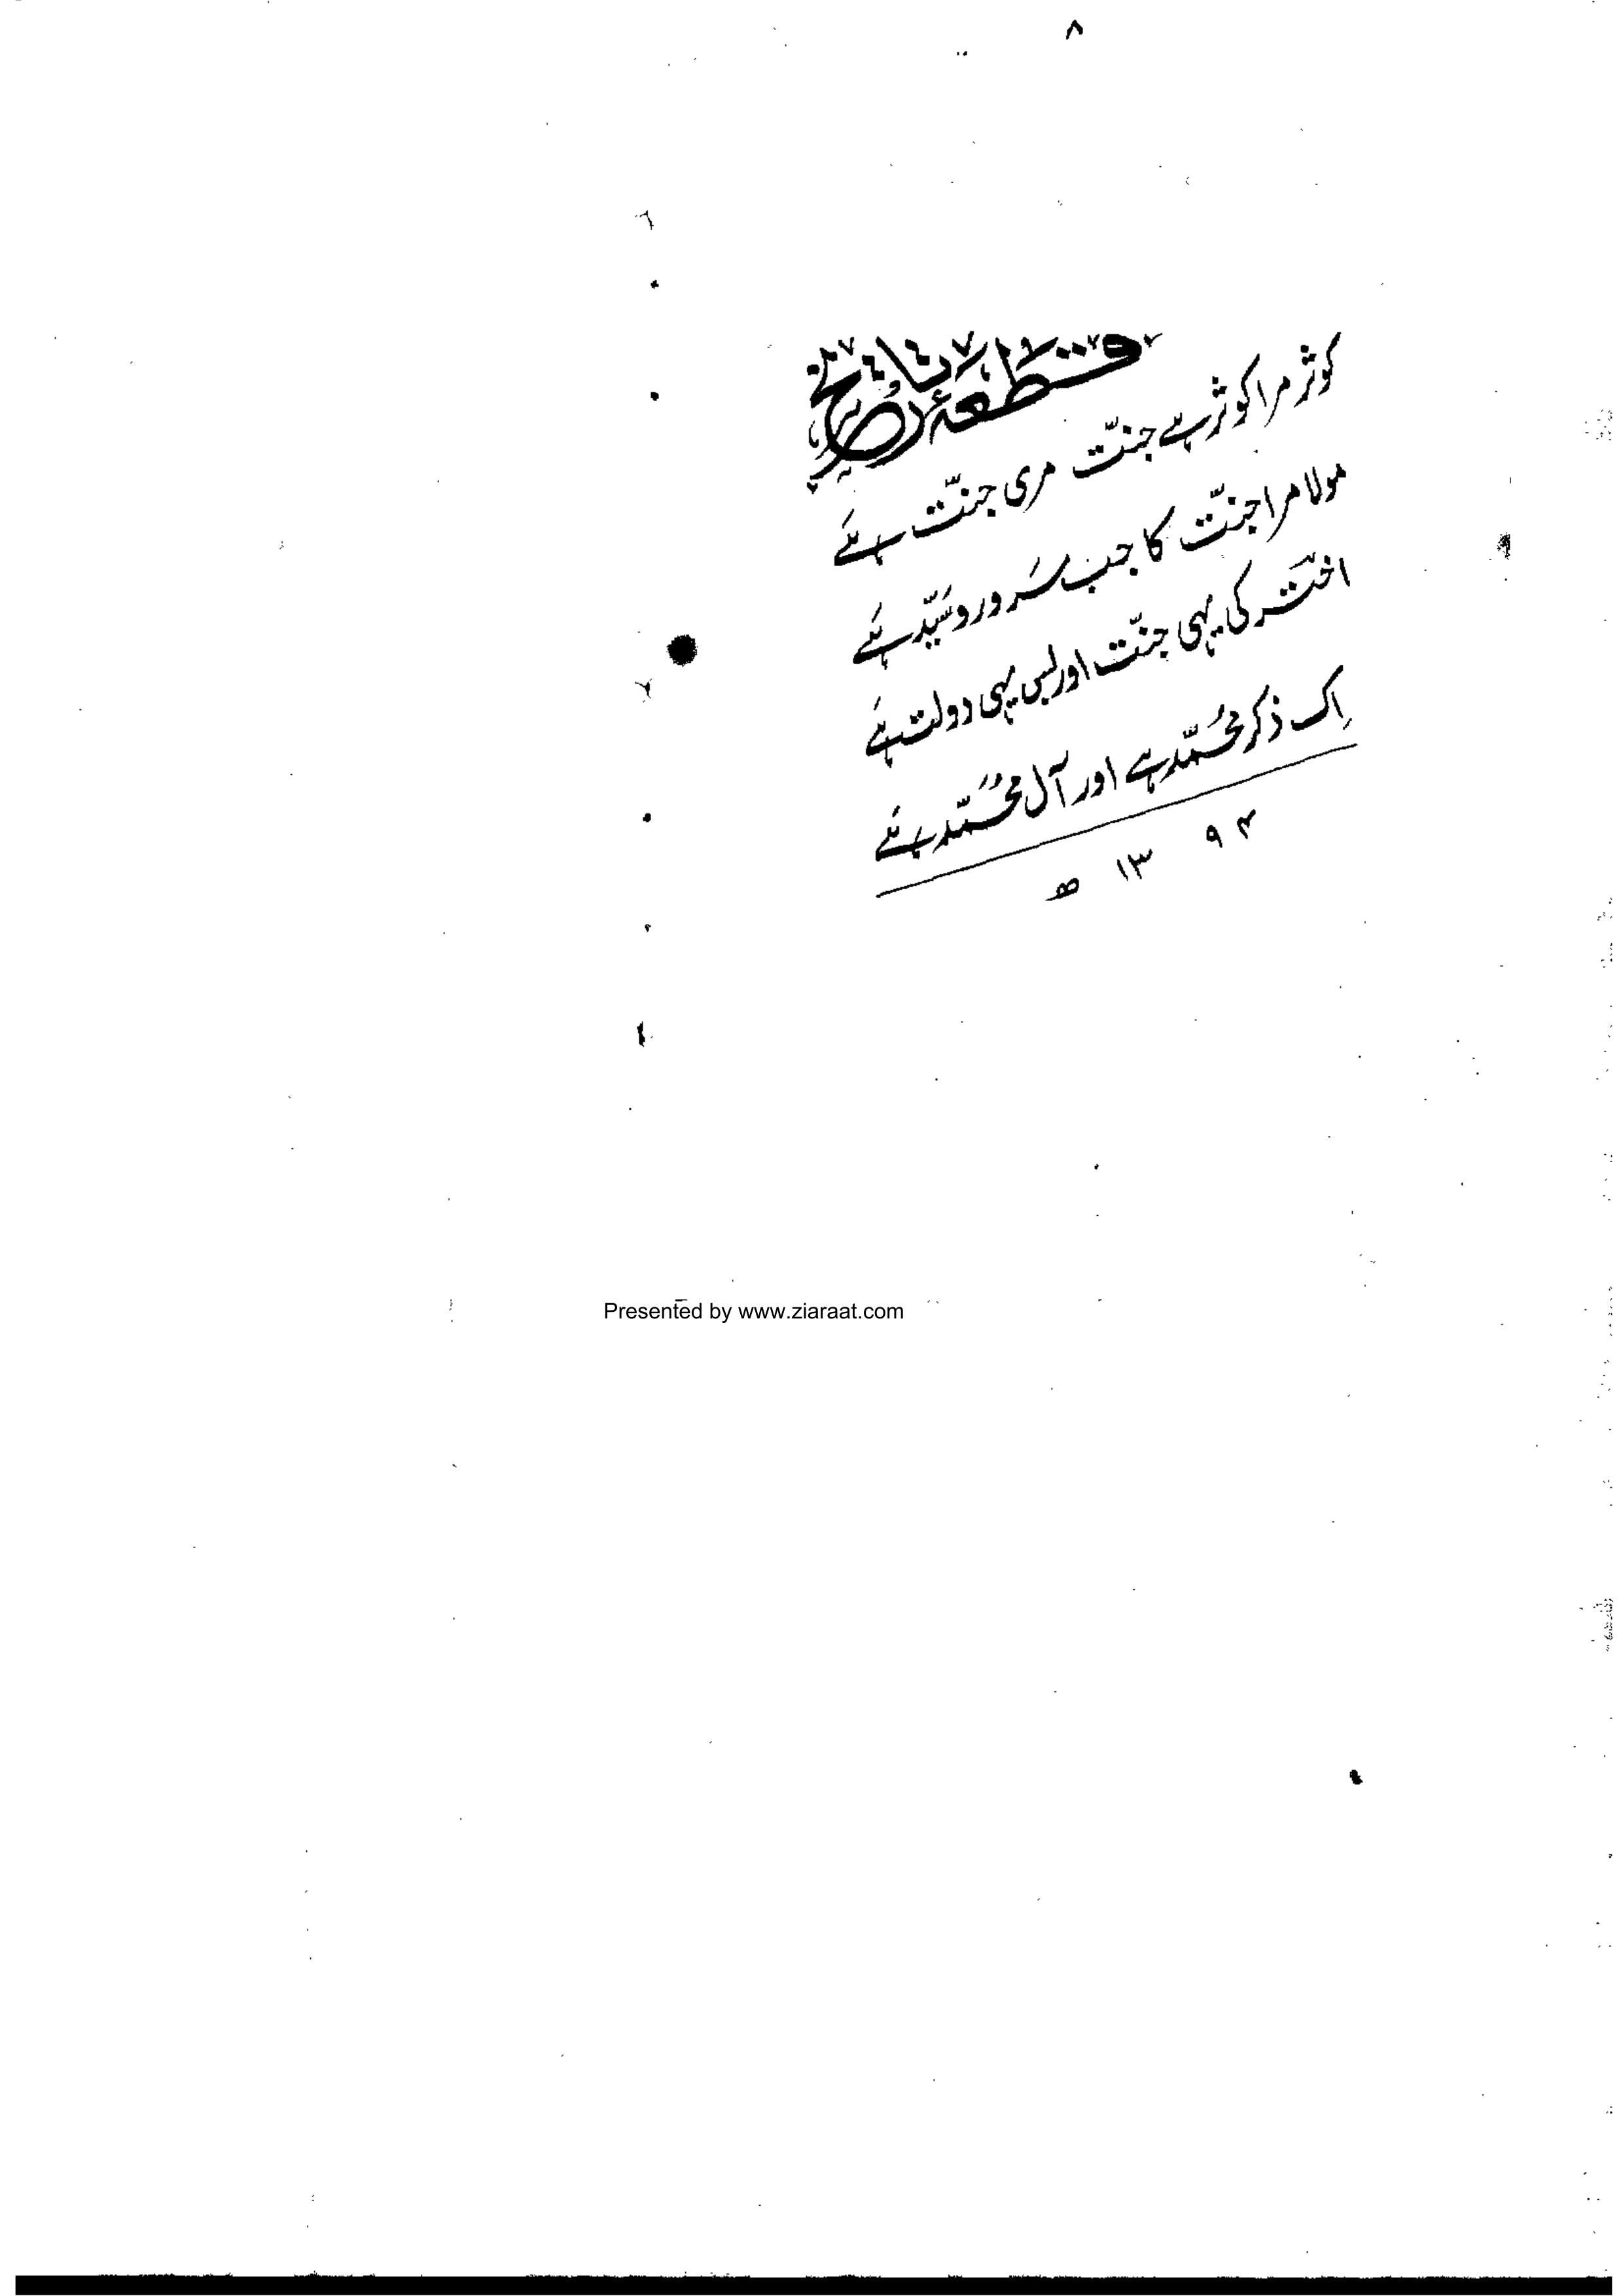 ۸
قطعۂ تاریخ
کوثر مرا کوثر ہے جنّت مری جنّت ہے
مولا مرا جنّت کا جب سَرور و سیّد ہے
اختَر کی یہی جنّت اور بس یہی دولت ہے
اِک ذکرِ محُمّد ہے اور آلِ محُمّد ہے
۱۳۹۴ ھ
Presented by www.ziaraat.com